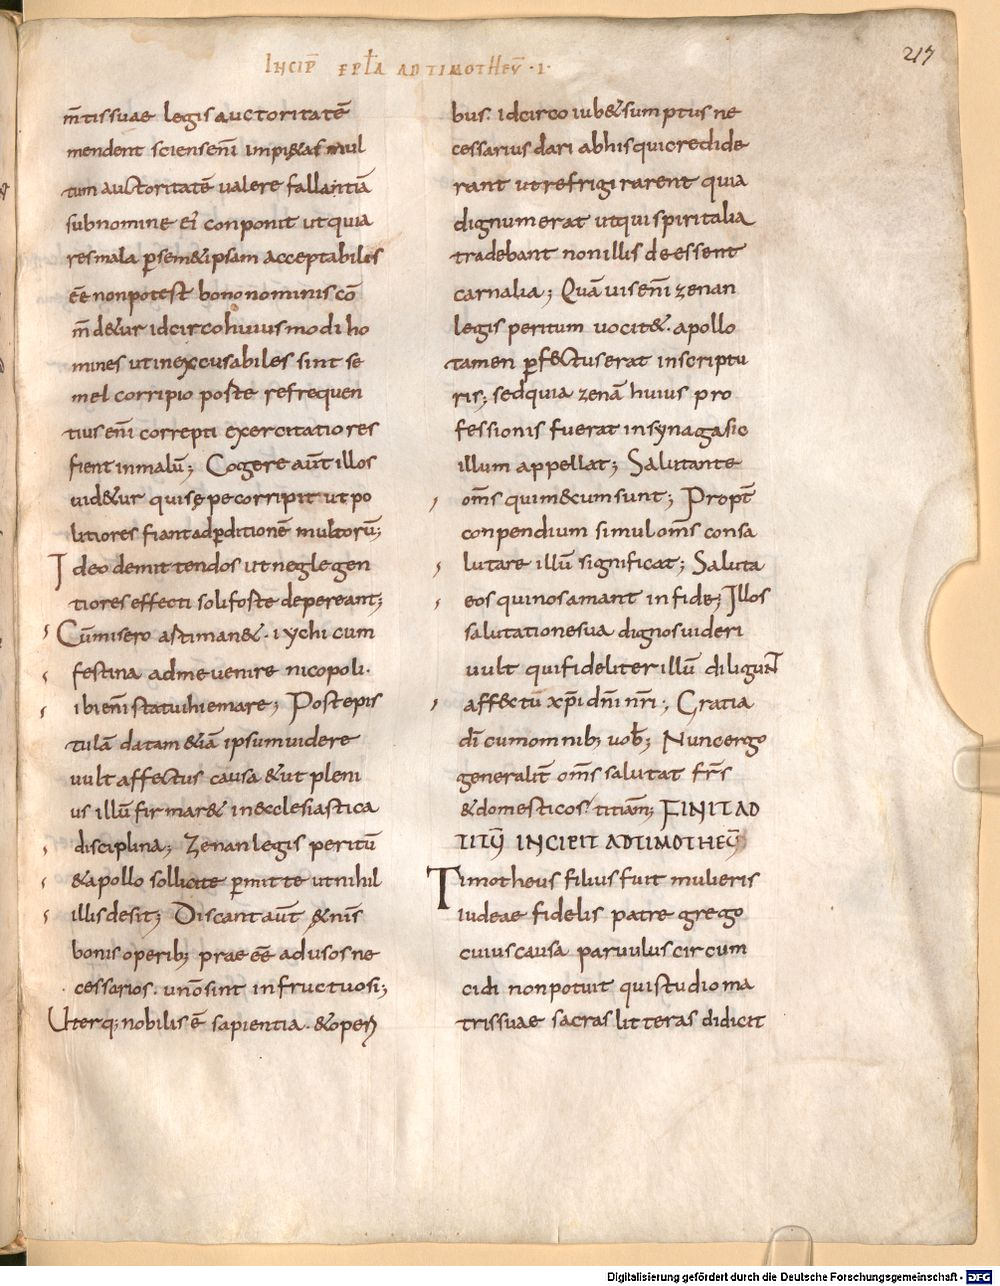 INCIP̄ EPƚA AD TIMOTHEŪ · I ·
217
m̄tissuae legis auctoritatē
mendent sciens eni̅ impi&at mul
tum auctoritatē ualere fallantiā
sub nomine ei̅ conponit ut quia
res mala ꝑ sem&ipsam acceptabiles
eē non potest bono nominis cō
m̄d&ur idcirco huius modi ho
mines ut inexcusabiles sint se
mel corripio poste re frequen
tius eni̅ correpti exercitatiores
fient in malū; Cogere aūt illos
uid&ur qui sępe corripit ut po
litiores fiant ad ꝑditionē multorū;
Ideo demittendos ut neglegen
tiores effecti soli foste depereant;
Cū misero astiman&· i ychi cum
festina ad me uenire nicopoli·
ibi eni̅ statui hiemare; Post epis
tulā datam &iā ipsum uidere
uult affectus causa & ut pleni
us illū firmar& in ecclesiastica
disciplina; Zenan legis peritū
& apollo sollicite ꝑmitte ut nihil
illis desit; Discant aūt & nr̄is
bonis operib; prae eē ad usos ne
cessarios· ut nō sint infructuosi;
Uterq; nobilis ē sapientia· & operū
bus· idcirco iub& sumptus ne
cessarius dari ab his qui credide
rant ut refrigirarent quia
dignum erat ut qui spiritalia
tradebant non illis deessent
carnalia; Quāuis eni̅ zenan
legis peritum uocit&· apollo
tamen ꝑfectus erat in scriptu
ris; sed quia zenā huius pro
fessionis fuerat in synagasic
illum appellat; Salutante
om̅s qui mecum sunt; Propt̄
conpendium simul om̅s consa
lutare illū significat; Saluta
eos qui nos amant in fide; Illos
salutatione sua dignos uideri
uult qui fideliter illū diligunt
affectu xp̄i dn̅i nr̄i; Gratia
dī cum omnib; uob̅; Nunc ergo
generalit̄ om̅s salutat fr̄s
& domesticos· titiām; FINIT AD
TITŪ INCIPIT AD TIMOTHEŪ
Timotheus filius fuit mulieris
iudeae fidelis patre grego
cuius causa paruulus circum
cidi non potuit qui studio ma
tris suae sacras litteras didicit
Digitalisierung gefördert durch die Deutsche Forschungsgemeinschaft - DFG